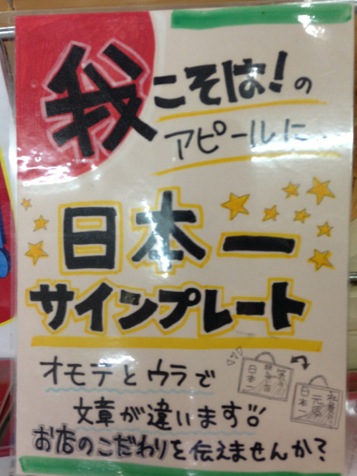 我こそは!の
アピールに
日本一
サインプレート
オモテとウラで
文章が違います
お店のこだわりを伝えませんか?
日本一
日本一